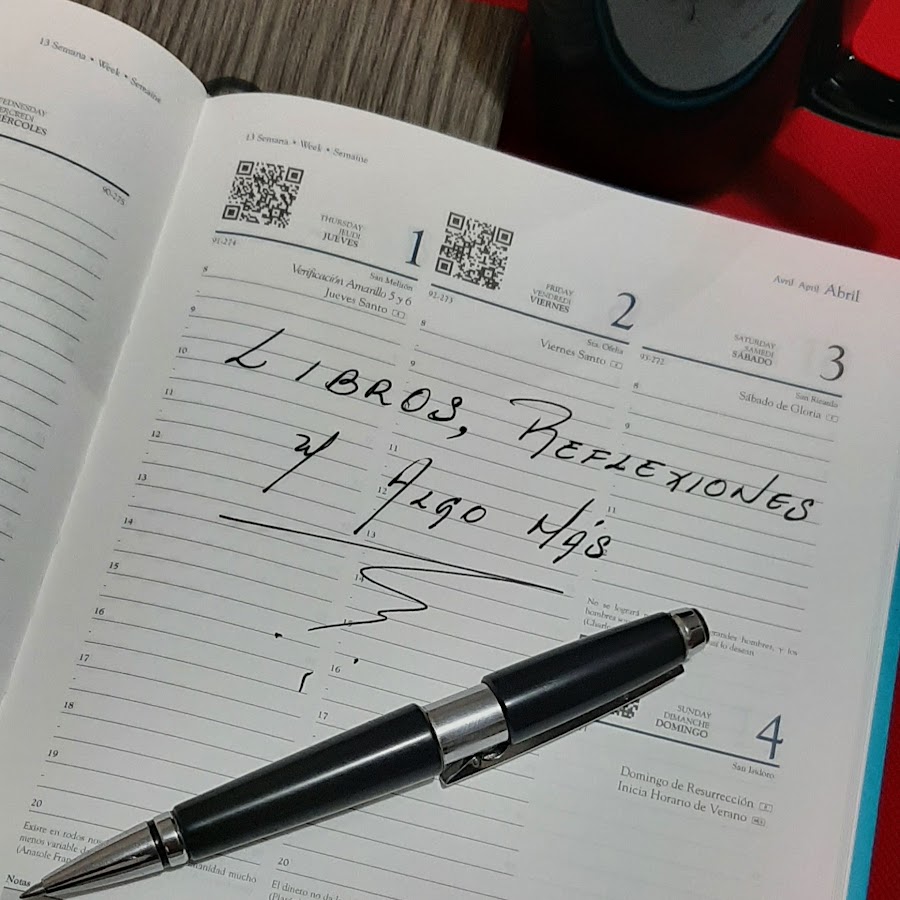 13 Semana • Week • Semaine
MIÉRCOLES
90-275
13 Semana • Week • Semaine
Avril April Abril
THURSDAY
JEUDI
JUEVES
1
91-274
San Melitón
Verificación Amarillo 5 y 6
Jueves Santo
FRIDAY
VENDREDI
VIERNES
2
92-273
Sta. Ofelia
Viernes Santo
SATURDAY
SAMEDI
SÁBADO
3
93-272
San Ricardo
Sábado de Gloria
8
9
10
11
12
13
14
15
16
17
18
19
20
8
9
11
12
13
14
15
16
17
20
8
9
11
LIBROS, REFLEXIONES
y ALGO MÁS
No se logrará
grandes hombres, y los
hombres
lo desean
SUNDAY
DIMANCHE
DOMINGO
4
San Isidoro
Domingo de Resurrección
Inicia Horario de Verano
Existe en todos
menos variable
humanidad mucho
(Anatole
Notas
El dinero no